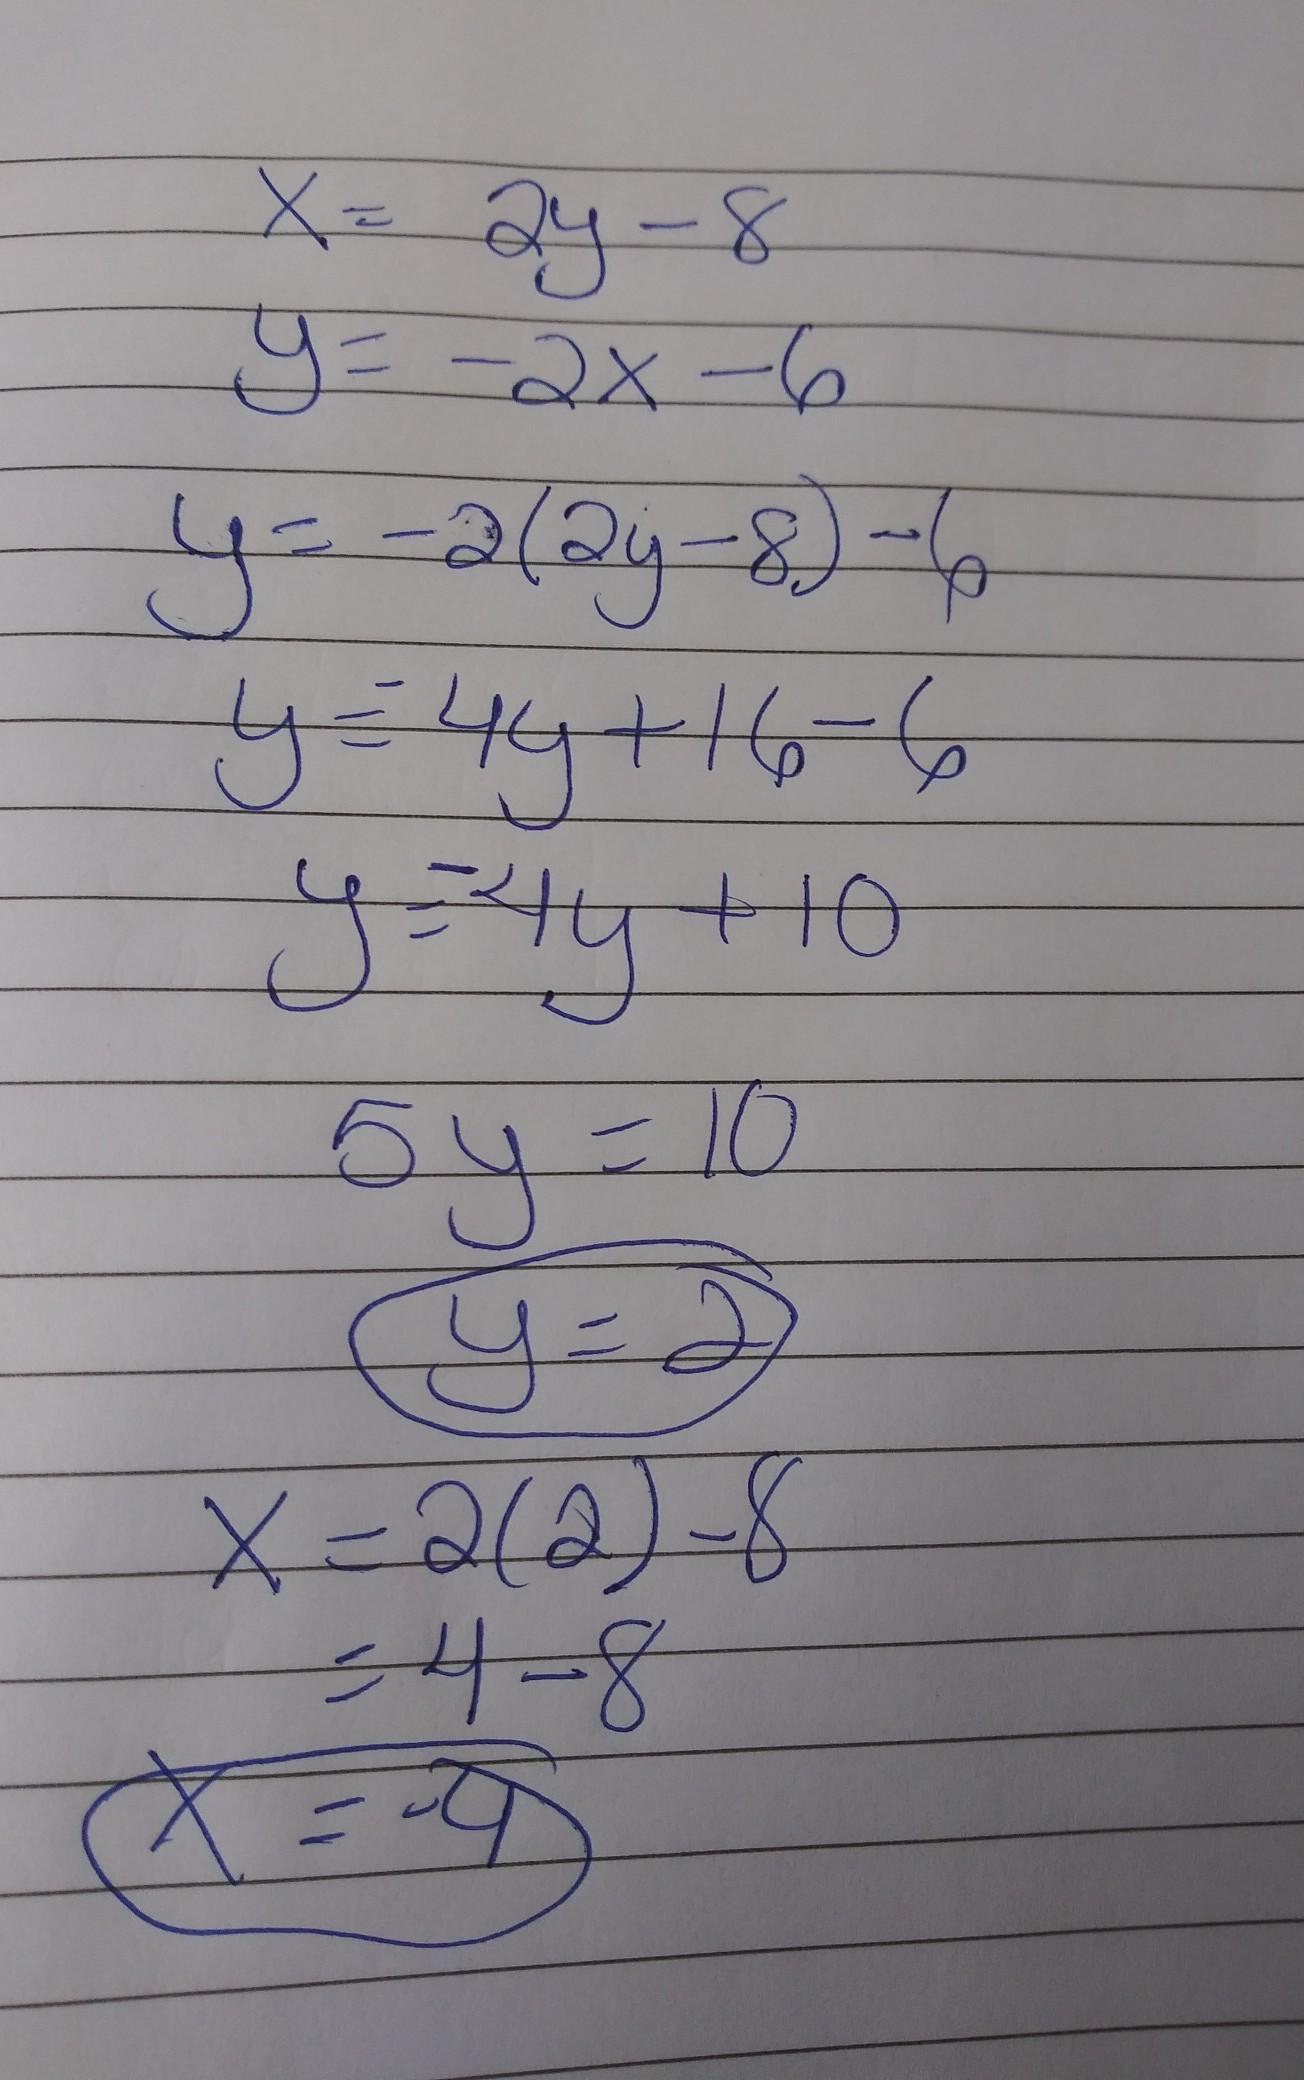 x = 2y - 8
y = -2x - 6
y = -2(2y - 8) - 6
y = -4y + 16 - 6
y = -4y + 10
5y = 10
y = 2
x = 2(2) - 8
= 4 - 8
x = -4